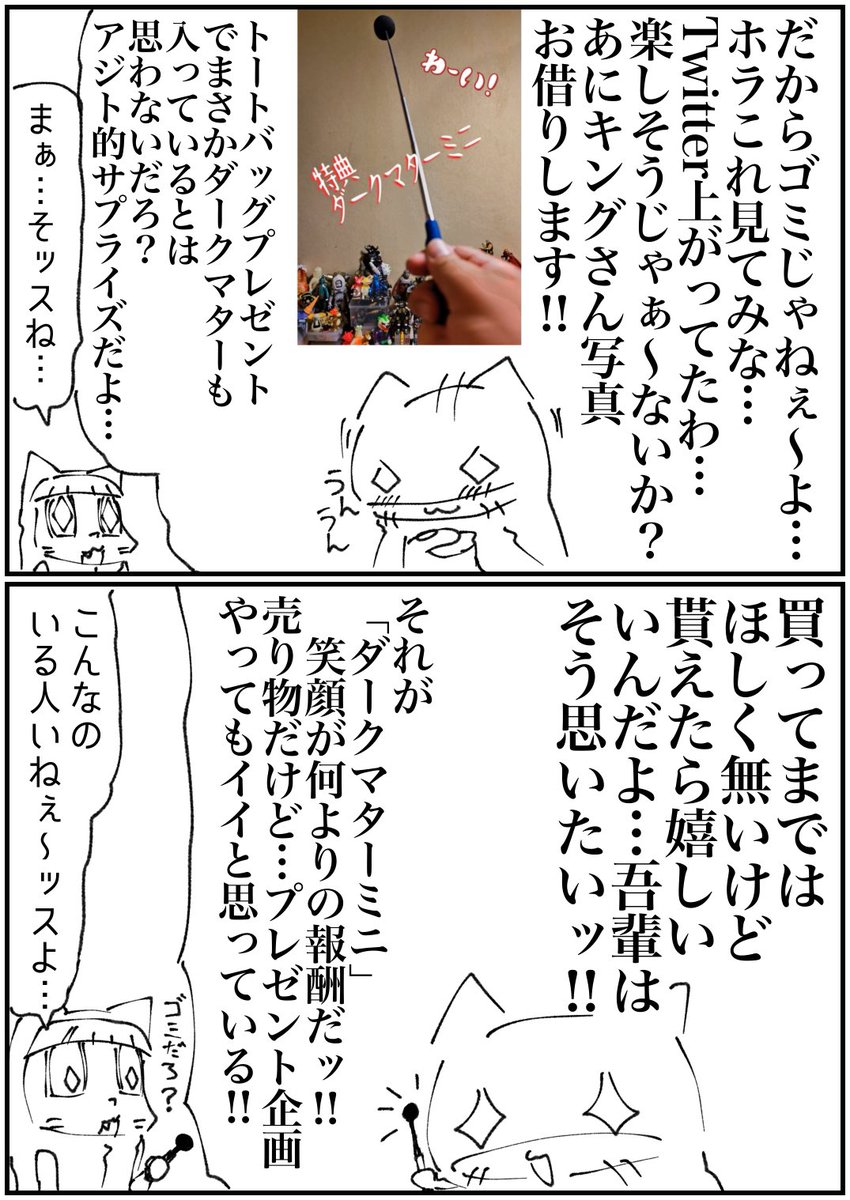 だからゴミじゃねぇ〜よ…
ホラこれ見てみな…
Twitter上がってたわ…
楽しそうじゃぁ〜ないか?
あにキングさん写真
お借りします!!
わーい!
特典
ダークマターミニ
トートバッグプレゼント
でまさかダークマターも
入っているとは
思わないだろ?
アジト的サプライズだよ…
うん
うん
まぁ…そッスね…
買ってまでは
ほしく無いけど
貰えたら嬉しい
いんだよ…吾輩は
そう思いたいッ!!
それが
「ダークマターミニ」
笑顔が何よりの報酬だッ!!
売り物だけど…プレゼント企画
やってもイイと思っている!!
こんなの
いる人いねぇ〜ッスよ…
ゴミだろ?